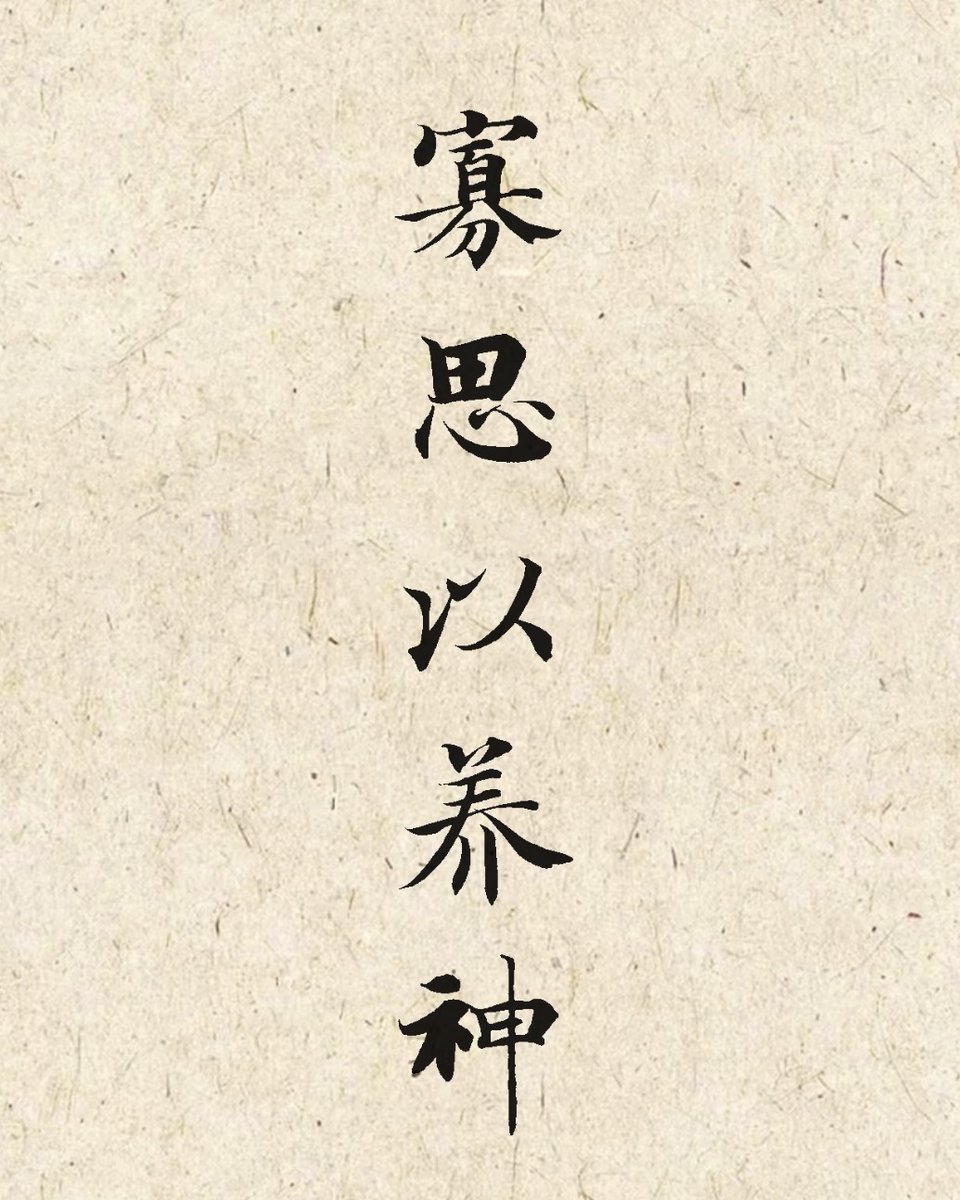 寡思以养神